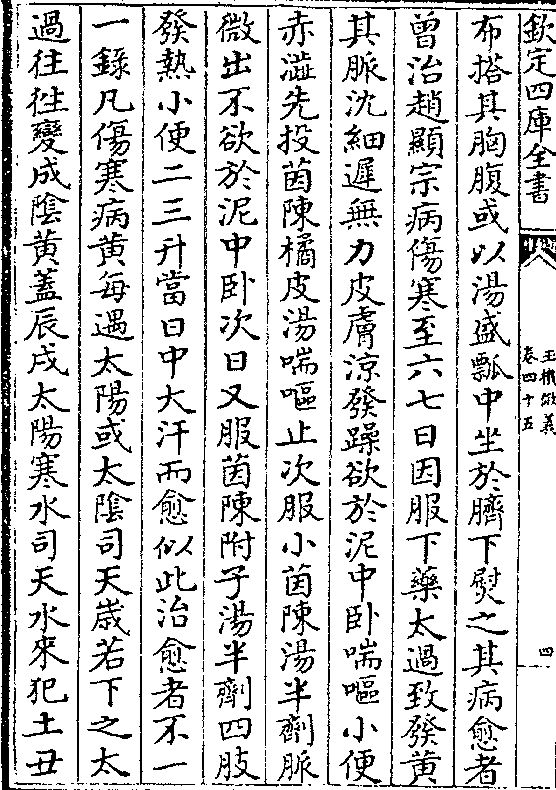 欽定四庫全書
玉機微義
卷四十五
四
布搭其胸腹或以湯盛瓢中坐於臍下熨之其病愈者
曾治趙顯宗病傷寒至六七日因服下藥太過致發黄
其脈沈細遲無力皮膚涼發躁欲於泥中卧喘嘔小便
赤澁先投茵陳橘皮湯喘嘔止次服小茵陳湯半劑脈
微出不欲於泥中卧次日又服茵陳附子湯半劑四肢
發熱小便二三升當日中大汗而愈似此治愈者不一
一錄凡傷寒病黄每遇太陽或太陰司天歲若下之太
過往往變成陰黄蓋辰戌太陽寒水司天水來犯土丑